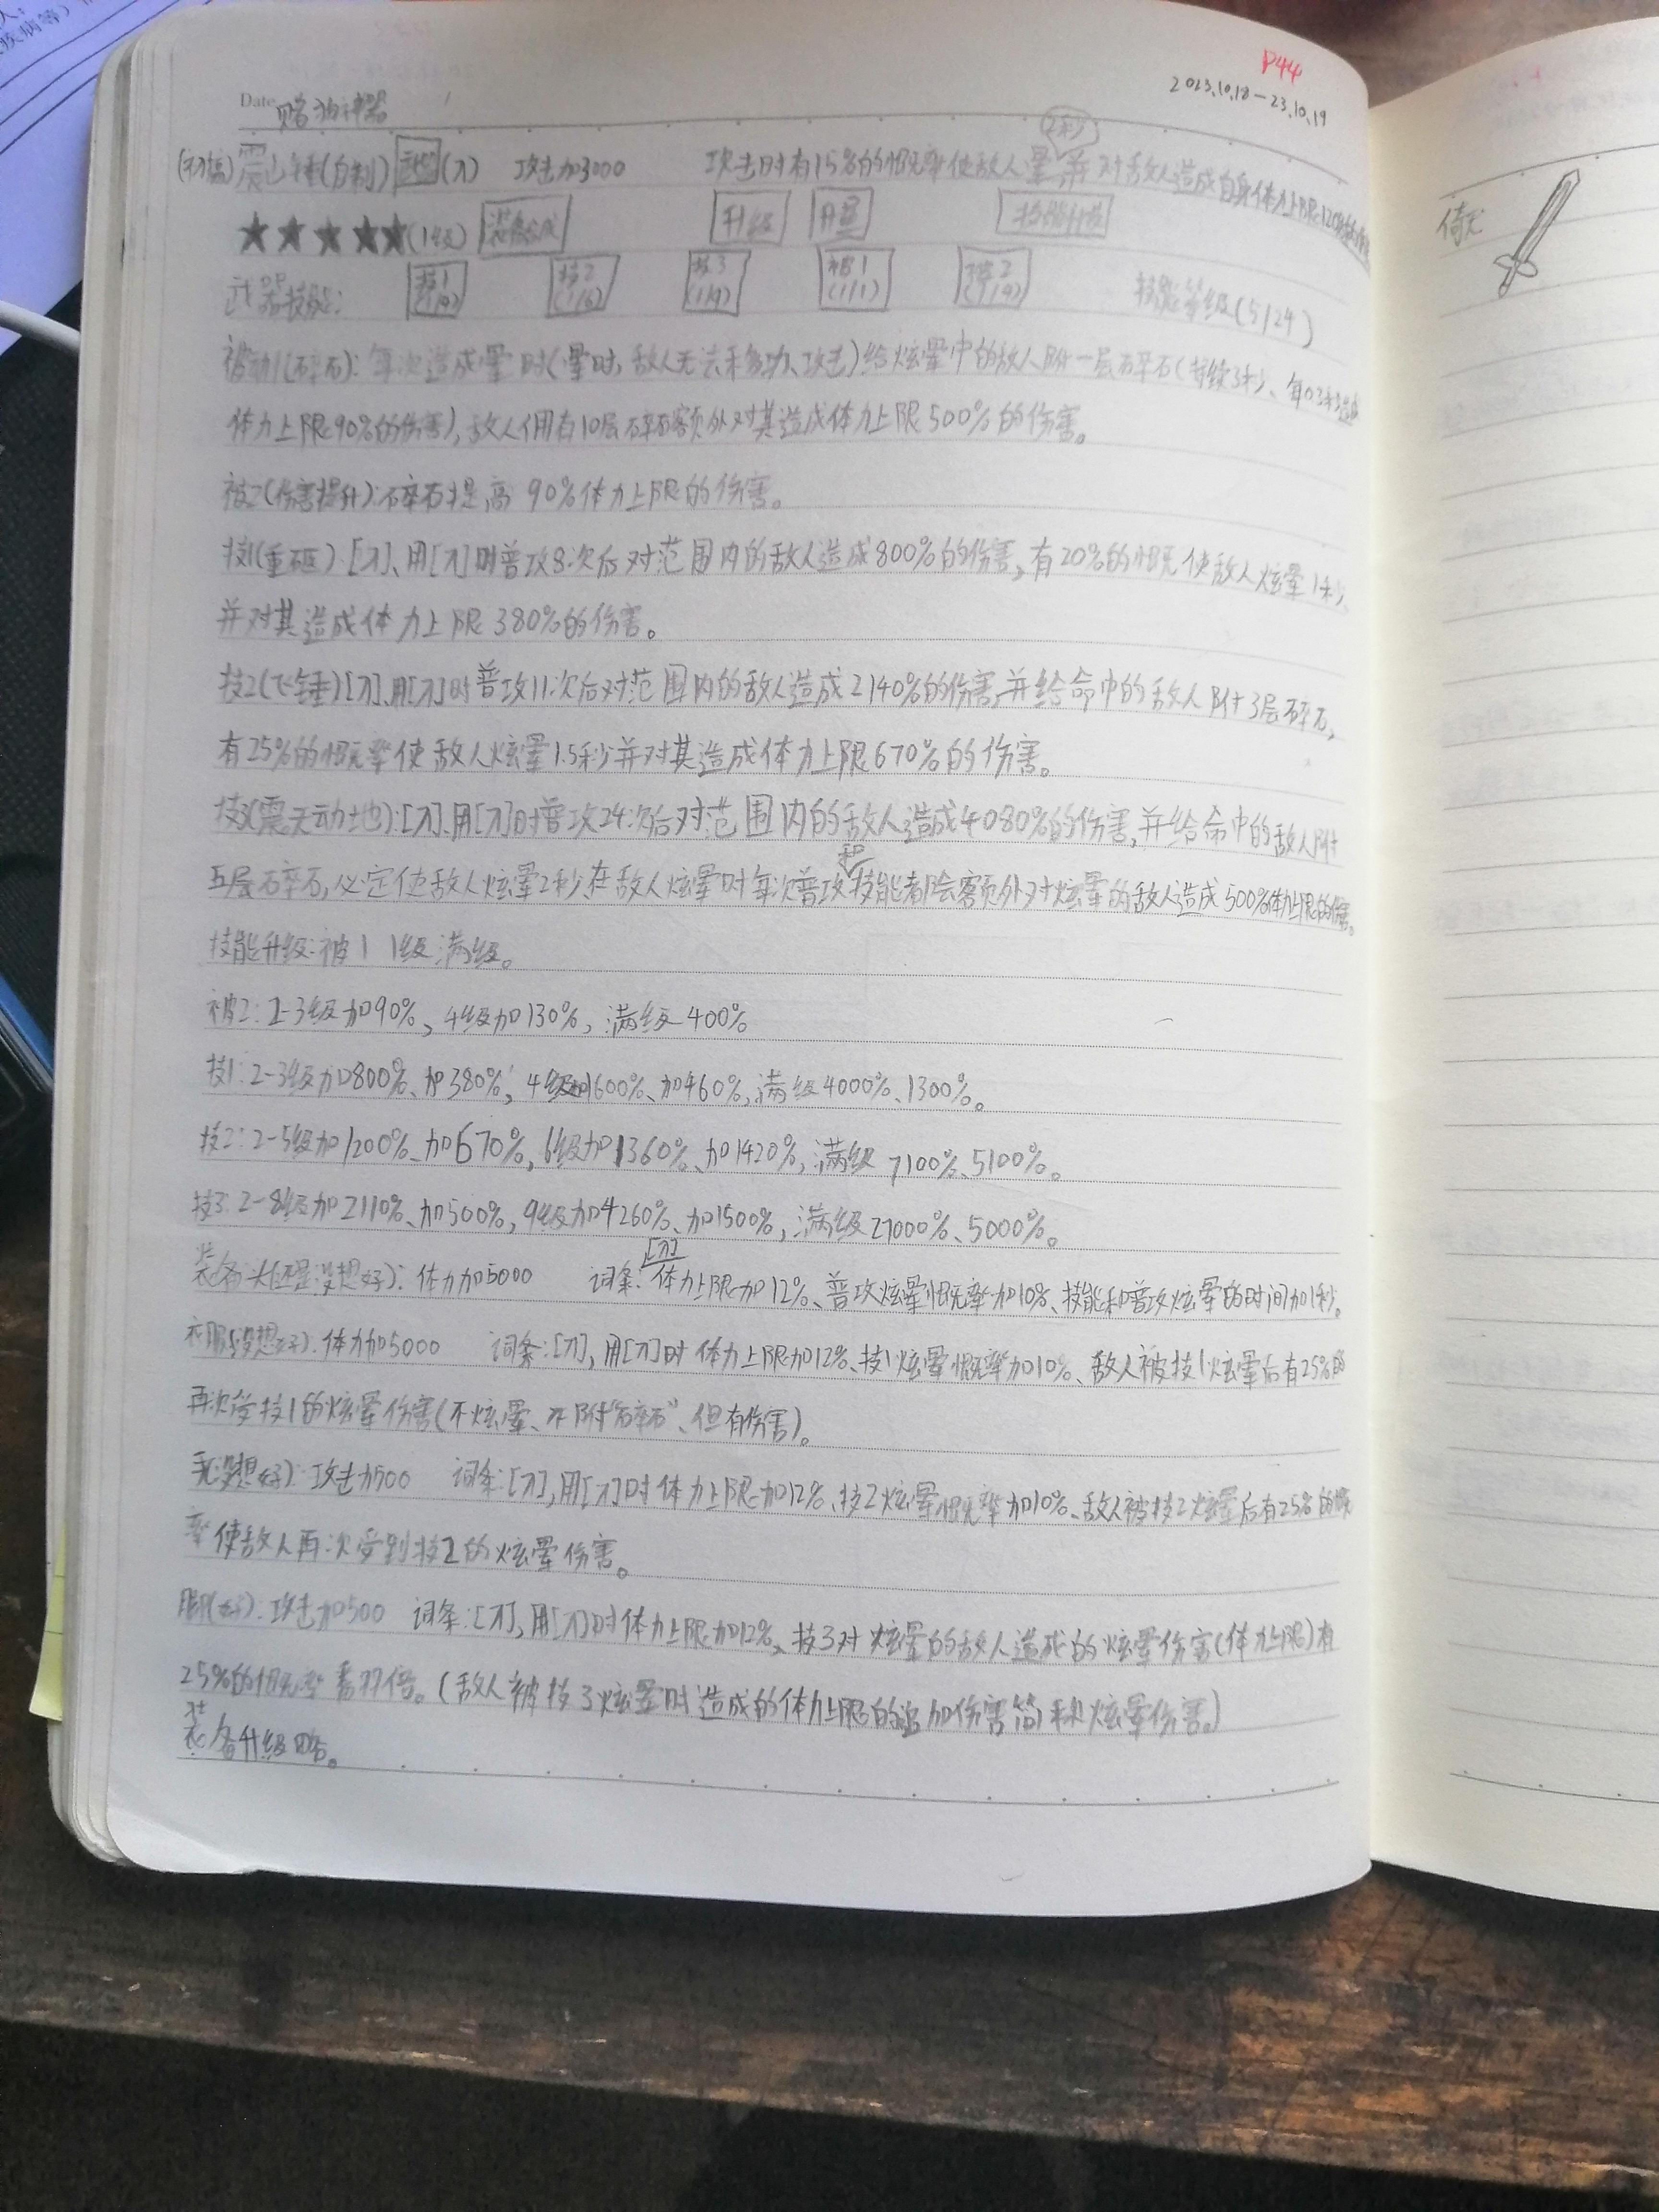 P44
2023.10.18-23.10.19
Date 赌狗神器
(初稿)震山锤(自制) 武器(刀) 攻击加3000 攻击时有15%的概率使敌人晕2秒并对敌人造成自身体力上限120%的伤害
★★★★★(1级) 装备合成 升级 升星
武器技能: 技1(1/4) 技2(1/6) 技3(1/9) 被1(1/1) 被2(1/4) 技能等级(5/24)
被动1(碎石):每次造成晕时(晕时,敌人无法移动、攻击)给炫晕中的敌人附一层碎石(持续3秒、每0.3秒造成
体力上限90%的伤害),敌人佣有10层碎石额外对其造成体力上限500%的伤害。
被2(伤害提升):碎石提高90%体力上限的伤害。
技1(重砸):[刀]、用[刀]时普攻8次后对范围内的敌人造成800%的伤害,有20%的概光使敌人炫晕1秒,
并对其造成体力上限380%的伤害。
技2(飞锤)[刀],用[刀]时普攻11次后对范围内的敌人造成2140%的伤害,并给命中的敌人附3层碎石,
有25%的概率使敌人炫晕1.5秒并对其造成体力上限670%的伤害。
技3(震天动地):[刀].用[刀]时普攻24次后对范围内的敌人造成4080%的伤害,并给命中的敌人附
五层碎石,必定使敌人炫晕2秒,在敌人炫晕时每次普攻和技能都会额外对炫晕的敌人造成500%体力上限的伤害。
技能升级:被1 1级满级。
被2:2-3级加90%、4级加130%,满级400%
技1:2-3级加800%、加380%,4级加1600%、加460%,满级4000%、1300%。
技2:2-5级加1200%、加670%,6级加1360%、加1420%,满级7100%、5100%。
技3:2-8级加2110%、加500%,9级加4260%、加1500%,满级27000%、5000%。
装备:头(还是没想好):体力加5000 词条:[刀]体力上限加12%、普攻炫晕概率加10%、技能和普攻炫晕的时间加1秒。
衣服(没想好):体力加5000 词条:[刀],用[刀]时体力上限加12%、技1炫晕概率加10%、敌人被技1炫晕后有25%的
再次受技1的炫晕伤害(不炫晕、不附“碎石”、但有伤害)。
没想好):攻击加500 词条:[刀],用[刀]时体力上限加12%、技2炫晕概率加10%、敌人被技2炫晕后有25%的概
率使敌人再次受到技2的炫晕伤害。
脚(好):攻击加500 词条:[刀],用[刀]时体力上限加12%、技3对炫晕的敌人造成的炫晕伤害(体力上限)有
25%的概率番倍。(敌人被技3炫晕时造成的体力上限的追加伤害简称炫晕伤害。)
装备升级略。
倚天